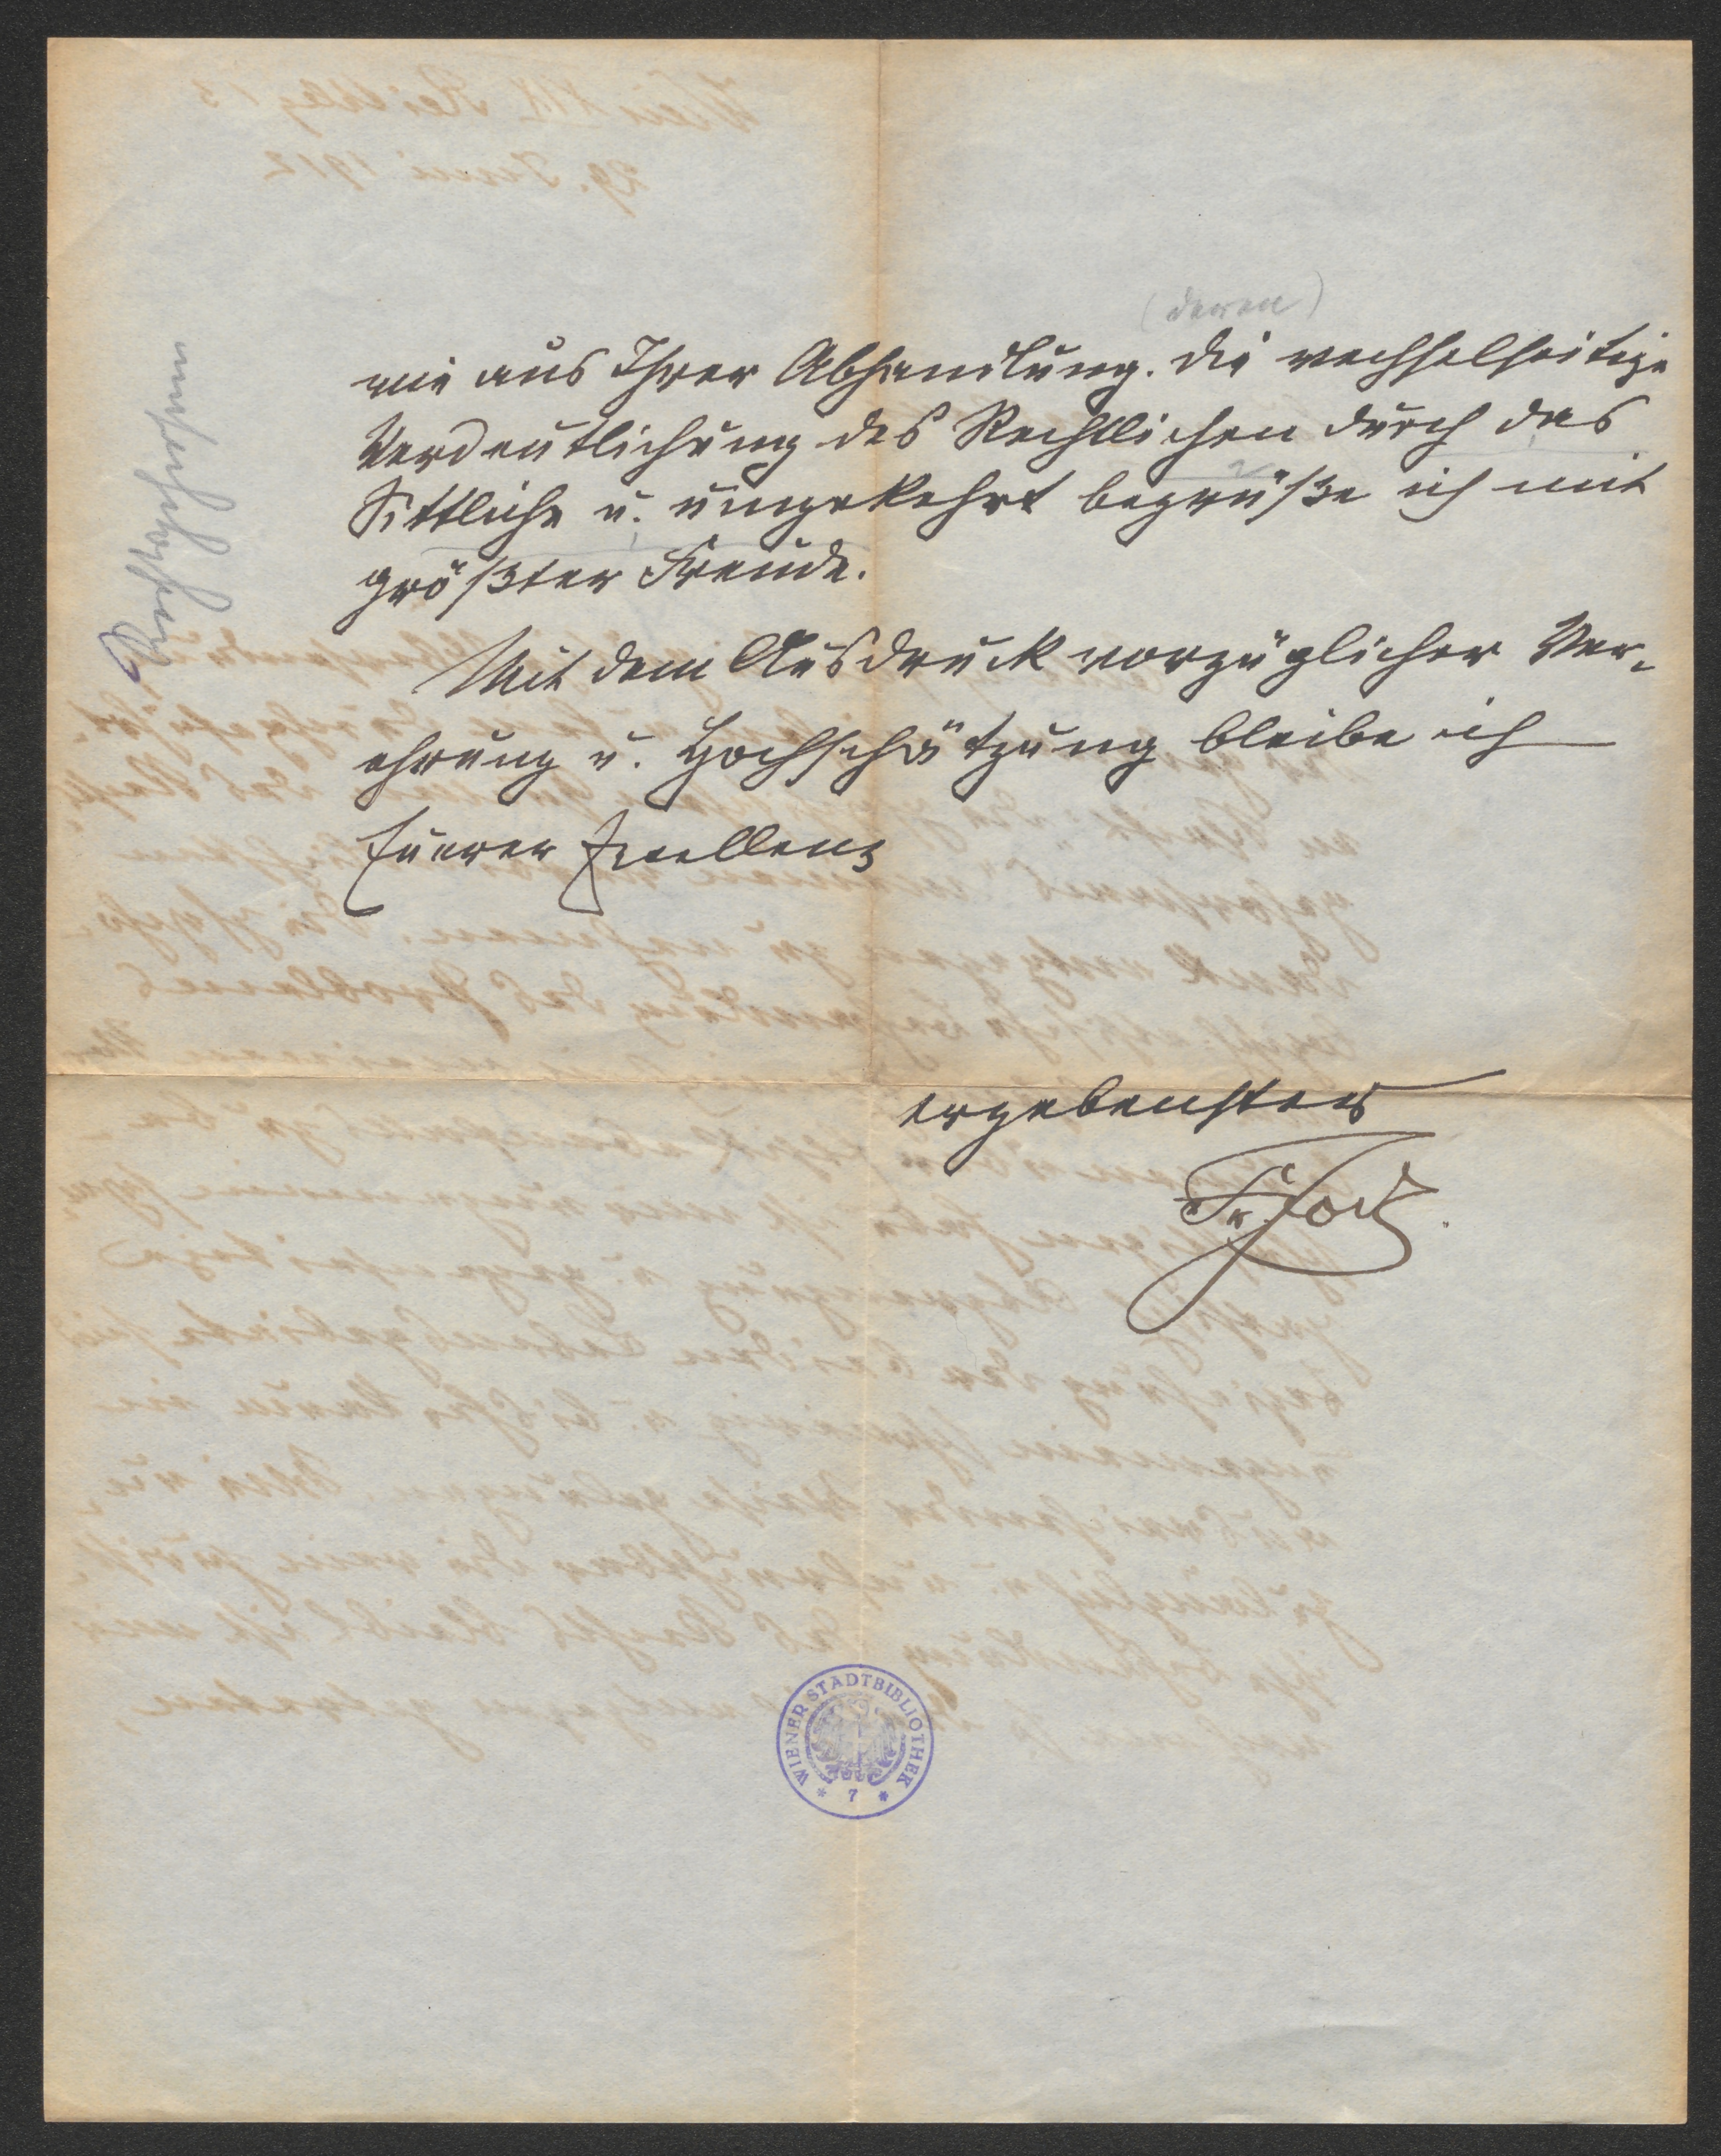 (deren)
wie aus Ihrer Abhandlung. Die wechselseitige
Verdeutlichung des Rechtlichen durch das
Sittliche u. umgekehrt begrüße ich mit
größter Freude.
Mit dem Ausdruck vorzüglicher Ver-
ehrung u. Hochschätzung bleibe ich
Euerer Exzellenz
ergebenster
Fr. Jodl.
WIENER STADTBIBLIOTHEK
* 7 *